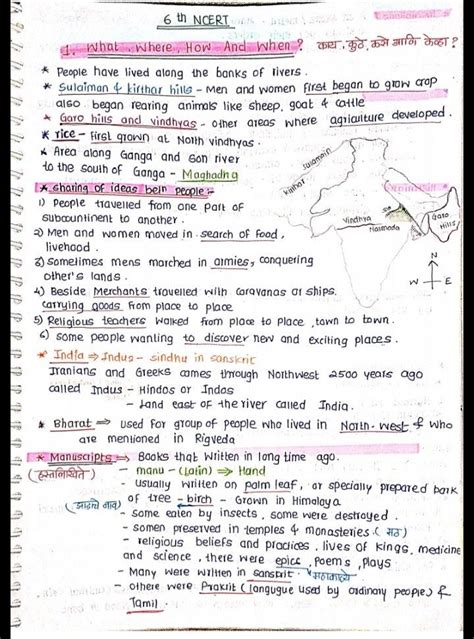 6th NCERT
1. What, Where, How And When? काय, कुठे, कसे आणि केव्हा?
* People have lived along the banks of rivers.
* Sulaiman & kirthar hills - Men and women first began to grow crop
also began rearing animals like sheep, goat & cattle
* Garo hills and vindhyas - other areas where agriculture developed.
* rice - first grown at North vindhyas.
* Area along Ganga and son river
to the south of Ganga - Maghadha
* sharing of ideas betn people :-
1) People travelled from one part of
subcountinent to another.
2) Men and women moved in search of food,
livehood.
3) Sometimes mens marched in armies, conquering
other's lands.
4) Beside Merchants travelled with caravanas or ships.
carrying goods from place to place
5) Religious teachers walked from place to place, town to town.
6) some people wanting to discover new and exciting places.
kirthar
sulaiman
Vindhya
Narmada
Garo
Hills
N
W
E
* India ⇒ Indus - sindhu in sanskrit
Iranians and Greeks cames through Northwest 2500 years ago
called Indus - Hindos or Indos
- land east of the river called India.
* Bharat ⇒ used for group of people who lived in North-west & who
are mentioned in Rigveda
* Manuscripts ⇒ Books that written in long time ago.
(हस्तलिखिते)
- manu - (Latin) ⇒ Hand
- usually written on palm leaf, or specially prepared bark
of tree - birch - Grown in Himalaya
- some eaten by insects, some were destroyed.
- somen preserved in temples & monasteries. (मठ)
- religious beliefs and practices, lives of kings, medicine
and science, there were epics, poems, plays
- Many were written in sanskrit. महाकाव्ये
- others were Prakrit (langugue used by ordinary people) &
Tamil.